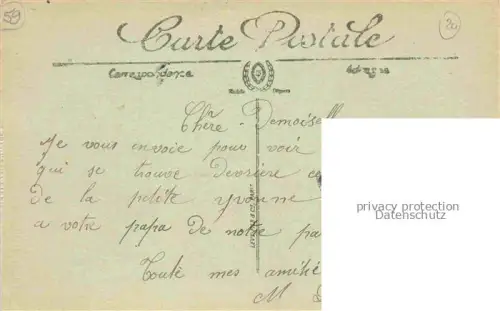 Carte Postale
Correspondance Adresse
Chère Demoisell
Je vous envoie pour voir
qui se trouve Derrière co
de la petite Yvonne
a votre papa de notre pa
Toute mes amitié
M
privacy protection
Datenschutz